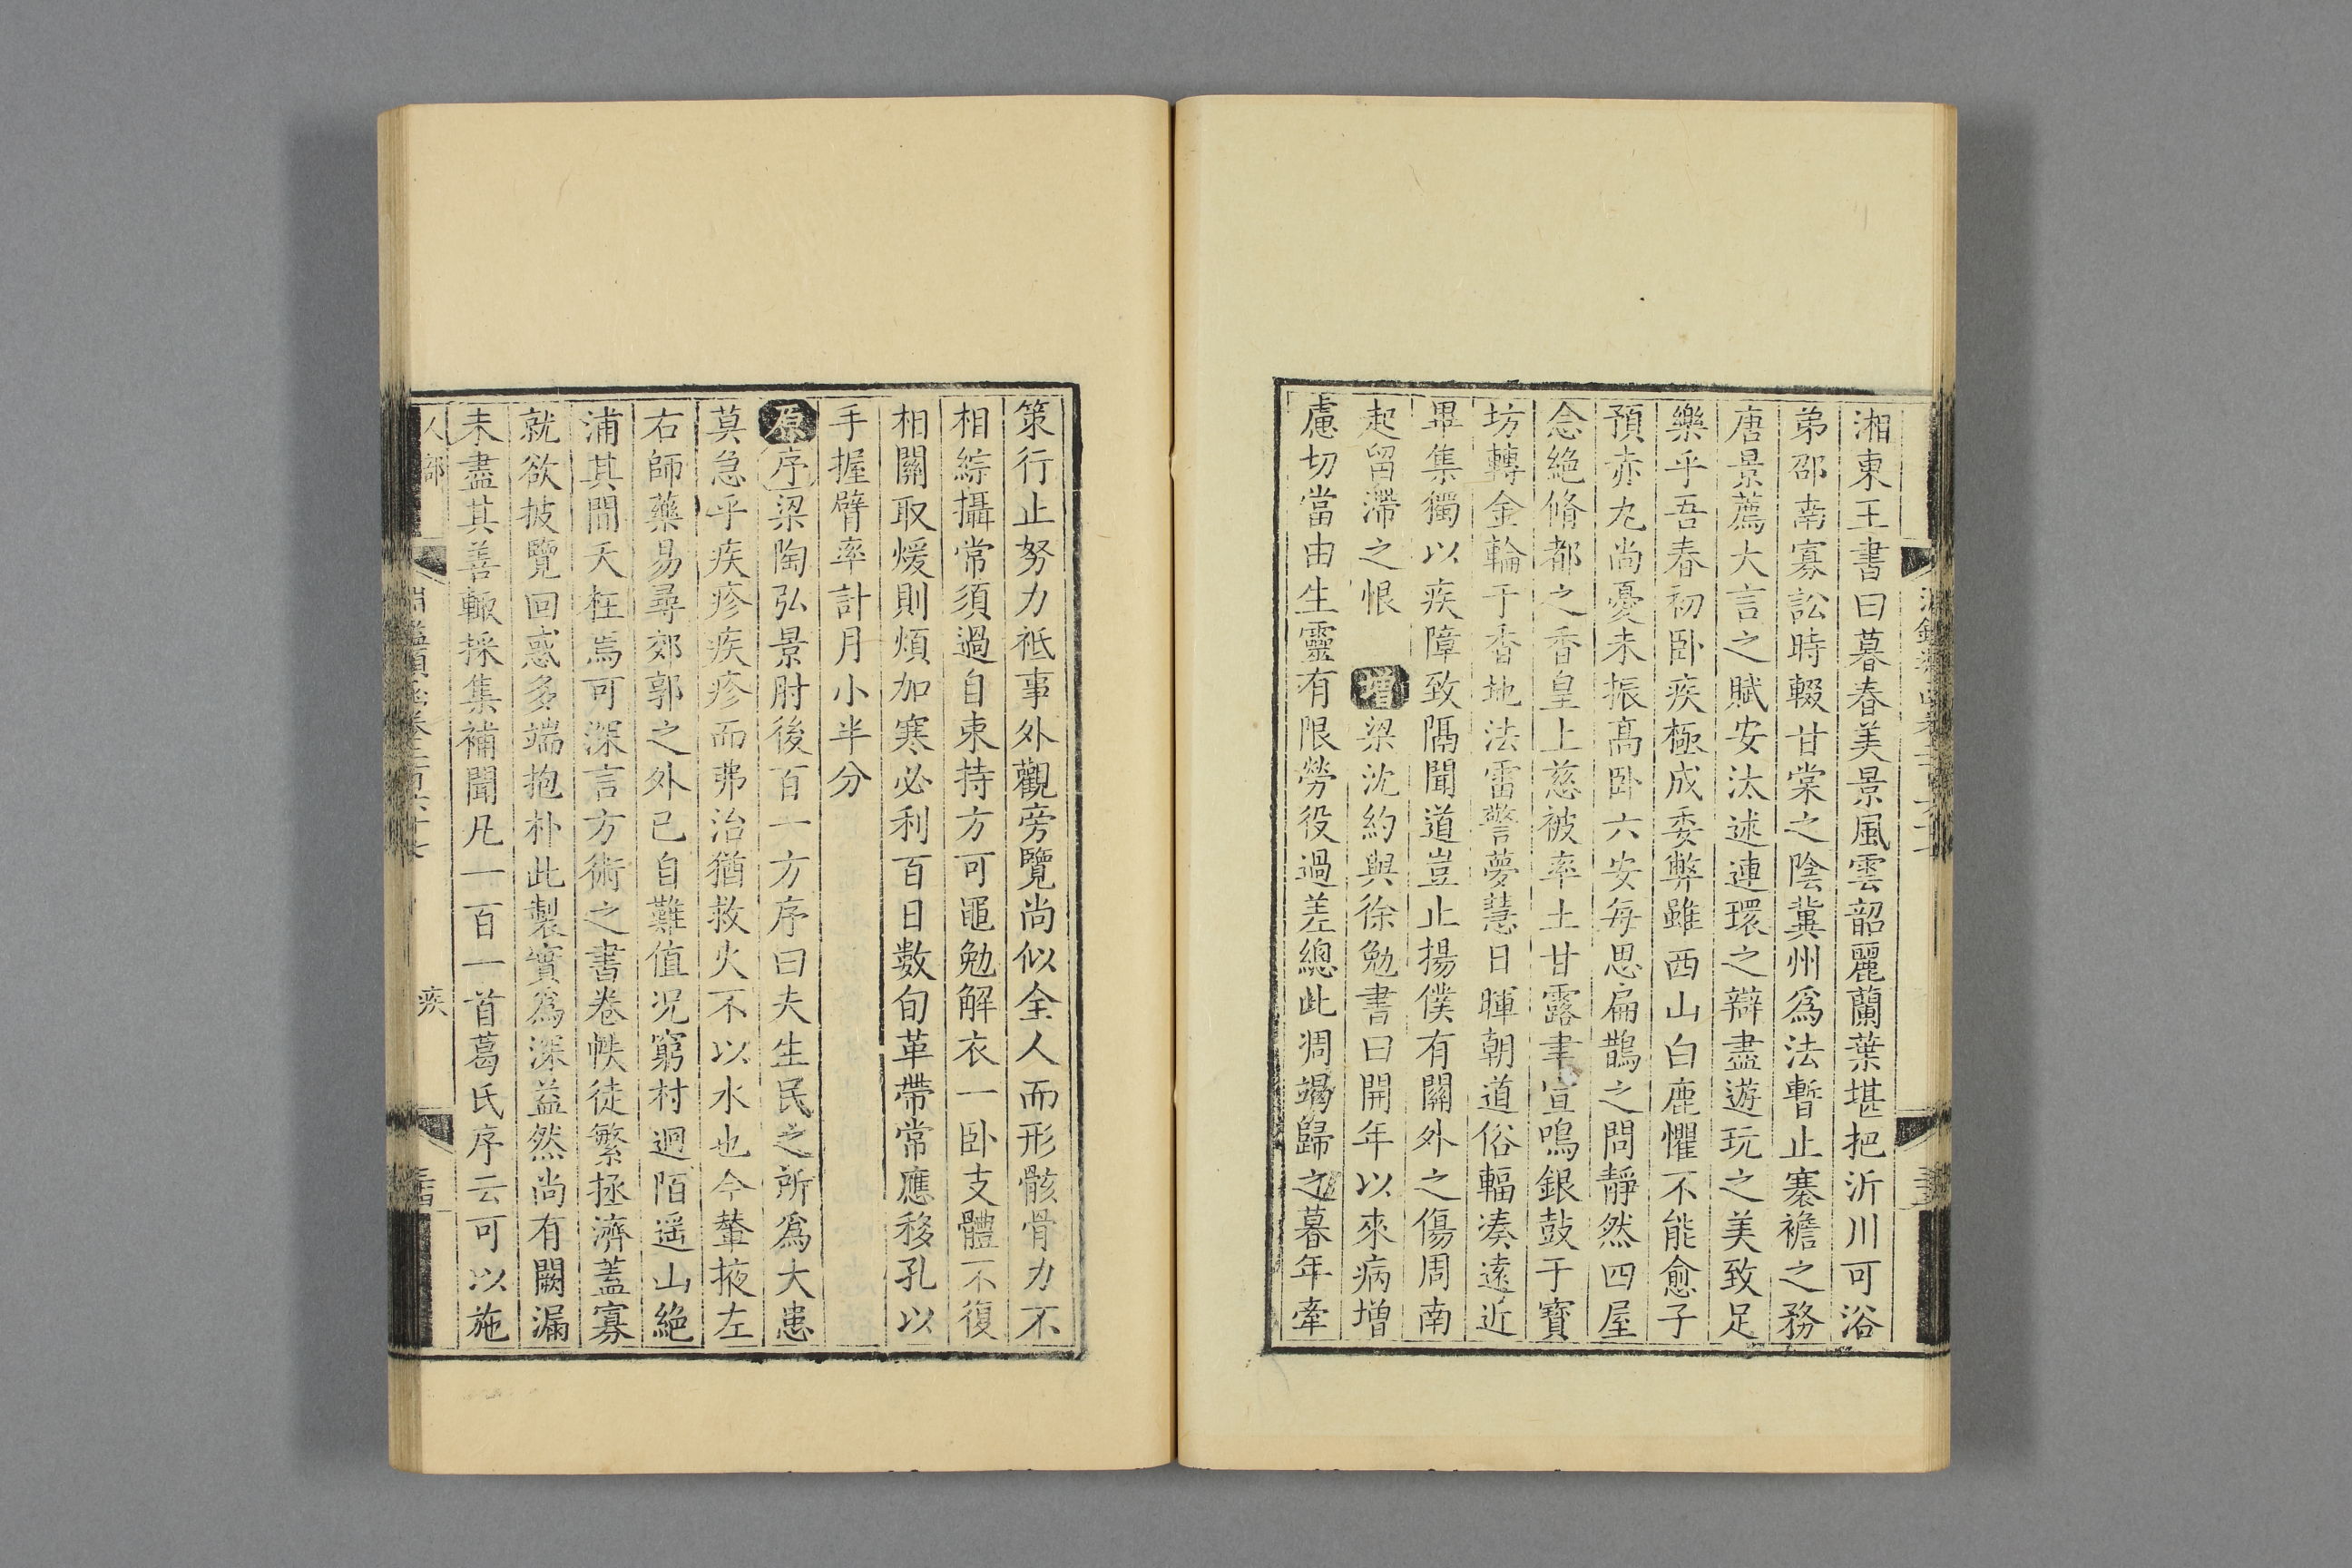 湘東王書曰暮春美景風雲韶麗蘭葉堪把沂川可浴
弟邵南寡訟時輟甘棠之陰冀州爲法暫止褰襜之務
唐景薦大言之賦安汰述連環之辯盡遊玩之美致足
樂乎吾春初卧疾極成委弊雖西山白鹿懼不能愈子
預赤丸尚憂未振高卧六安每思扁鵲之問靜然四屋
念絶脩都之香皇上慈被率土甘露聿宣鳴銀鼓于寳
坊轉金輪于香地法雷警夢慧日暉朝道俗輻凑逺近
畢集獨以疾障致隔聞道豈止揚僕有關外之傷周南
起留滯之恨 增梁沈約與徐勉書曰開年以來病增
慮切當由生靈有限勞役過差總此凋竭歸之暮年牽
策行止努力祗事外觀旁覽尚似全人而形骸骨力不
相綜攝常須過自束持方可黽勉解衣一卧支體不復
相關取煖則煩加寒必利百日數旬革帶常應移孔以
手握臂率計月小半分
原序梁陶弘景肘後百一方序曰夫生民之所爲大患
莫急乎疾疹疾疹而弗治猶救火不以水也今輦掖左
右師藥易尋郊郭之外已自難值況窮村迥陌遥山絶
浦其間夭枉焉可深言方術之書卷帙徒繁拯濟蓋寡
就欲披覽回惑多端抱朴此製實爲深益然尚有闕漏
未盡其善輙採集補闕凡一百一首葛氏序云可以施
人部
疾